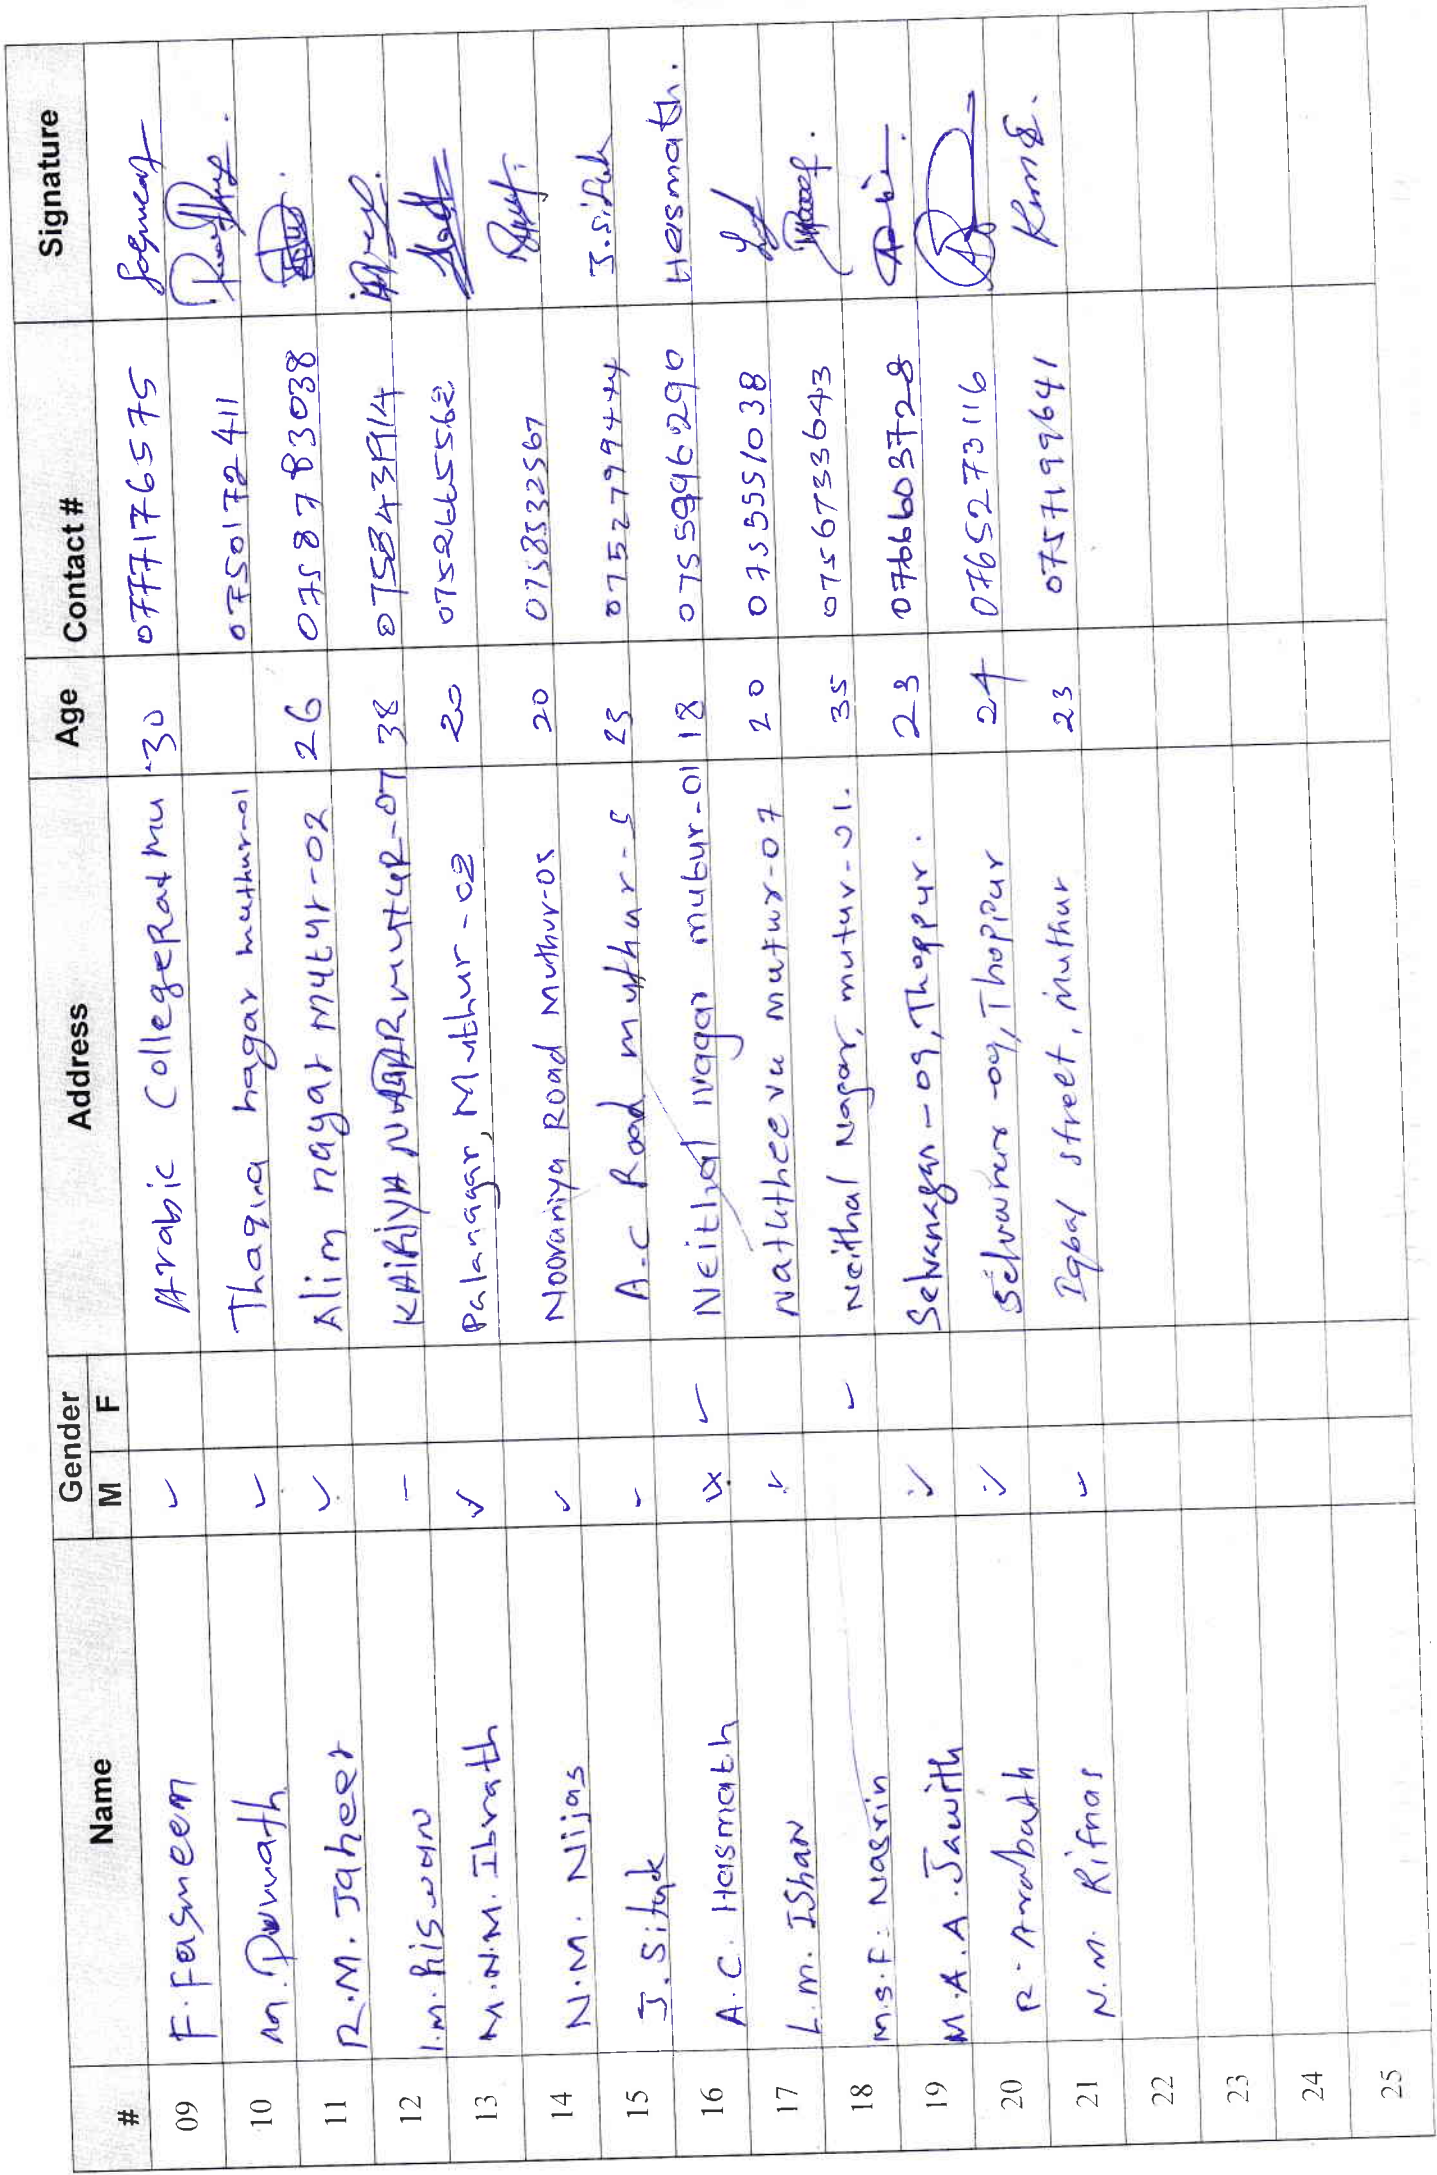 # Name Gender Address Age Contact # Signature
M F
09 F. Fasmeem ✓ Arabic College Rad mu 30 077176575
10 M. ✓ Thaqina nagar muthur-01 0750172411
11 R.M. Jaheer ✓ Alim nagar mutur-02 26 0758783038
12 I.M. Riswan – KHAIRIYA NAGAR mutuR-07 38
13 M.N.M. Ibrath ✓ Palanagar, Muthur-02 20
14 N.M. Nijas ✓ Nooraniya Road Muthur-05 20 0758532567
15 J. Sitak ✓ A.C Road muthur-5 23 J.Sitak
16 A.C. Hasmath ✓ Neithal nagar mutur-01 18 0755996290 Hasmath.
17 L.M. IShaN ✓ Naththeevu mutur-07 20 0755551038
18 M.S.F. Nasrin ✓ Neithal Nagar, mutur-01. 35 0756733643
19 M.A.A. Jawith ✓ Selvanagar-09, Thoppur. 23 0766603728
20 R. Arabath ✓ Selvanagar-09, Thoppur 24 0765273116
21 N.M. Rifnas ✓ Iqbal street, Muthur 23 0757199641
22
23
24
25